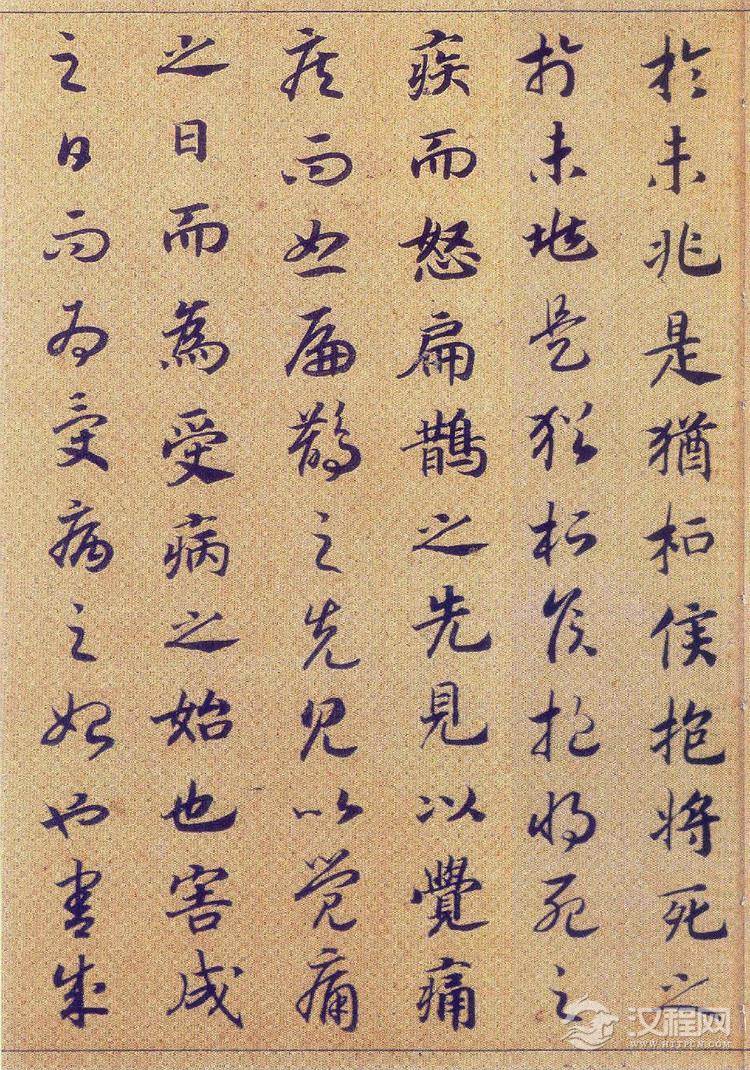 於未兆是猶桓侯抱將死之
於未兆是猶桓侯抱將死之
疾而怒扁鵲之先見以覺痛
疾而怒扁鵲之先見以覺痛
之日而為受病之始也害成
之日而為受病之始也害成
汉程网
WWW.HTTPCN.COM